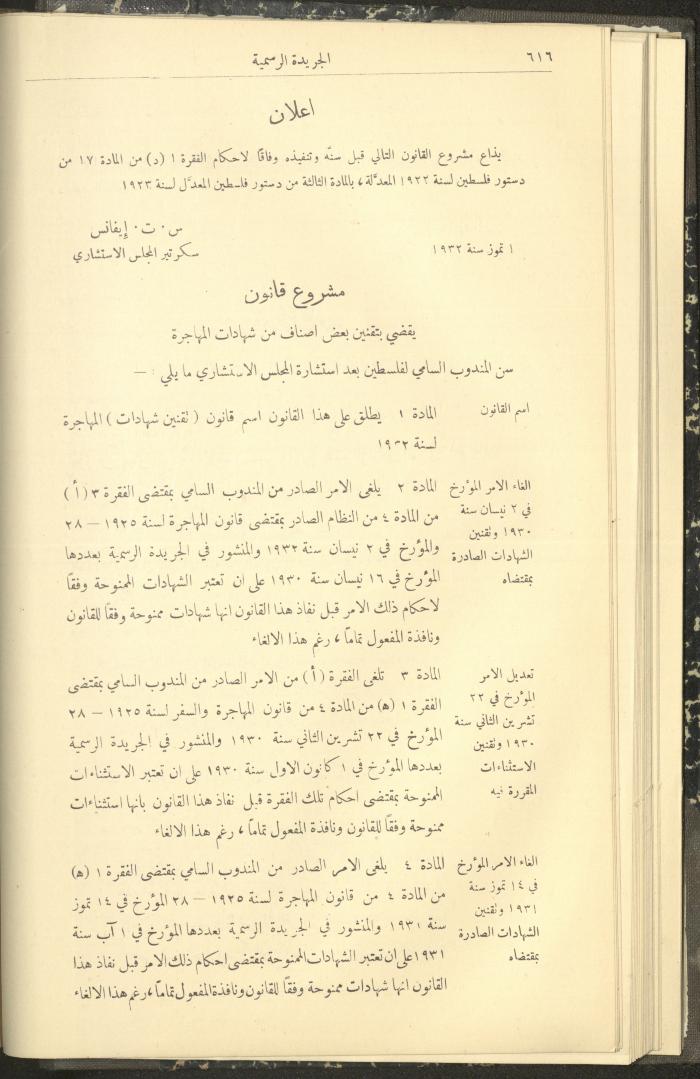 ٦١٦
الجريدة الرسمية
اعلان
يذاع مشروع القانون التالي قبل سنّه وتنفيذه وفاقًا لاحكام الفقرة ١ (د) من المادة ١٧ من
دستور فلسطين لسنة ١٩٢٢ المعدَّلة، بالمادة الثالثة من دستور فلسطين المعدَّل لسنة ١٩٢٣
س. ت. إيفانس
١ تموز سنة ١٩٣٢
سكرتير المجلس الاستشاري
مشروع قانون
يقضي بتقنين بعض اصناف من شهادات المهاجرة
سن المندوب السامي لفلسطين بعد استشارة المجلس الاستشاري ما يلي : —
اسم القانون
المادة ١ يطلق على هذا القانون اسم قانون (تقنين شهادات) المهاجرة
لسنة ١٩٣٢
الغاء الامر المؤرخ
في ٢ نيسان سنة
١٩٣٠ وتقنين
الشهادات الصادرة
بمقتضاه
المادة ٢ يلغى الامر الصادر من المندوب السامي بمقتضى الفقرة ٣ (أ)
من المادة ٤ من النظام الصادر بمقتضى قانون المهاجرة لسنة ١٩٢٥ — ٢٨
والمؤرخ في ٢ نيسان سنة ١٩٣٢ والمنشور في الجريدة الرسمية بعددها
المؤرخ في ١٦ نيسان سنة ١٩٣٠ على ان تعتبر الشهادات الممنوحة وفقًا
لاحكام ذلك الامر قبل نفاذ هذا القانون انها شهادات ممنوحة وفقًا للقانون
ونافذة المفعول تمامًا، رغم هذا الالغاء
تعديل الامر
المؤرخ في ٢٢
تشرين الثاني سنة
١٩٣٠ وتقنين
الاستثناءات
المقررة فيه
المادة ٣ تلغى الفقرة (أ) من الامر الصادر من المندوب السامي بمقتضى
الفقرة ١ (ه) من المادة ٤ من قانون المهاجرة والسفر لسنة ١٩٢٥ — ٢٨
المؤرخ في ٢٢ تشرين الثاني سنة ١٩٣٠ والمنشور في الجريدة الرسمية
بعددها المؤرخ في ١ كانون الاول سنة ١٩٣٠ على ان تعتبر الاستثناءات
الممنوحة بمقتضى احكام تلك الفقرة قبل نفاذ هذا القانون بانها استثناءات
ممنوحة وفقًا للقانون ونافذة المفعول تمامًا، رغم هذا الالغاء
الغاء الامر المؤرخ
في ١٤ تموز سنة
١٩٣١ وتقنين
الشهادات الصادرة
بمقتضاه
المادة ٤ يلغى الامر الصادر من المندوب السامي بمقتضى الفقرة ١ (ه)
من المادة ٤ من قانون المهاجرة لسنة ١٩٢٥ — ٢٨ المؤرخ في ١٤ تموز
سنة ١٩٣١ والمنشور في الجريدة الرسمية بعددها المؤرخ في ١ آب سنة
١٩٣١ على ان تعتبر الشهادات الممنوحة بمقتضى احكام ذلك الامر قبل نفاذ هذا
القانون انها شهادات ممنوحة وفقًا للقانون ونافذة المفعول تمامًا، رغم هذا الالغاء